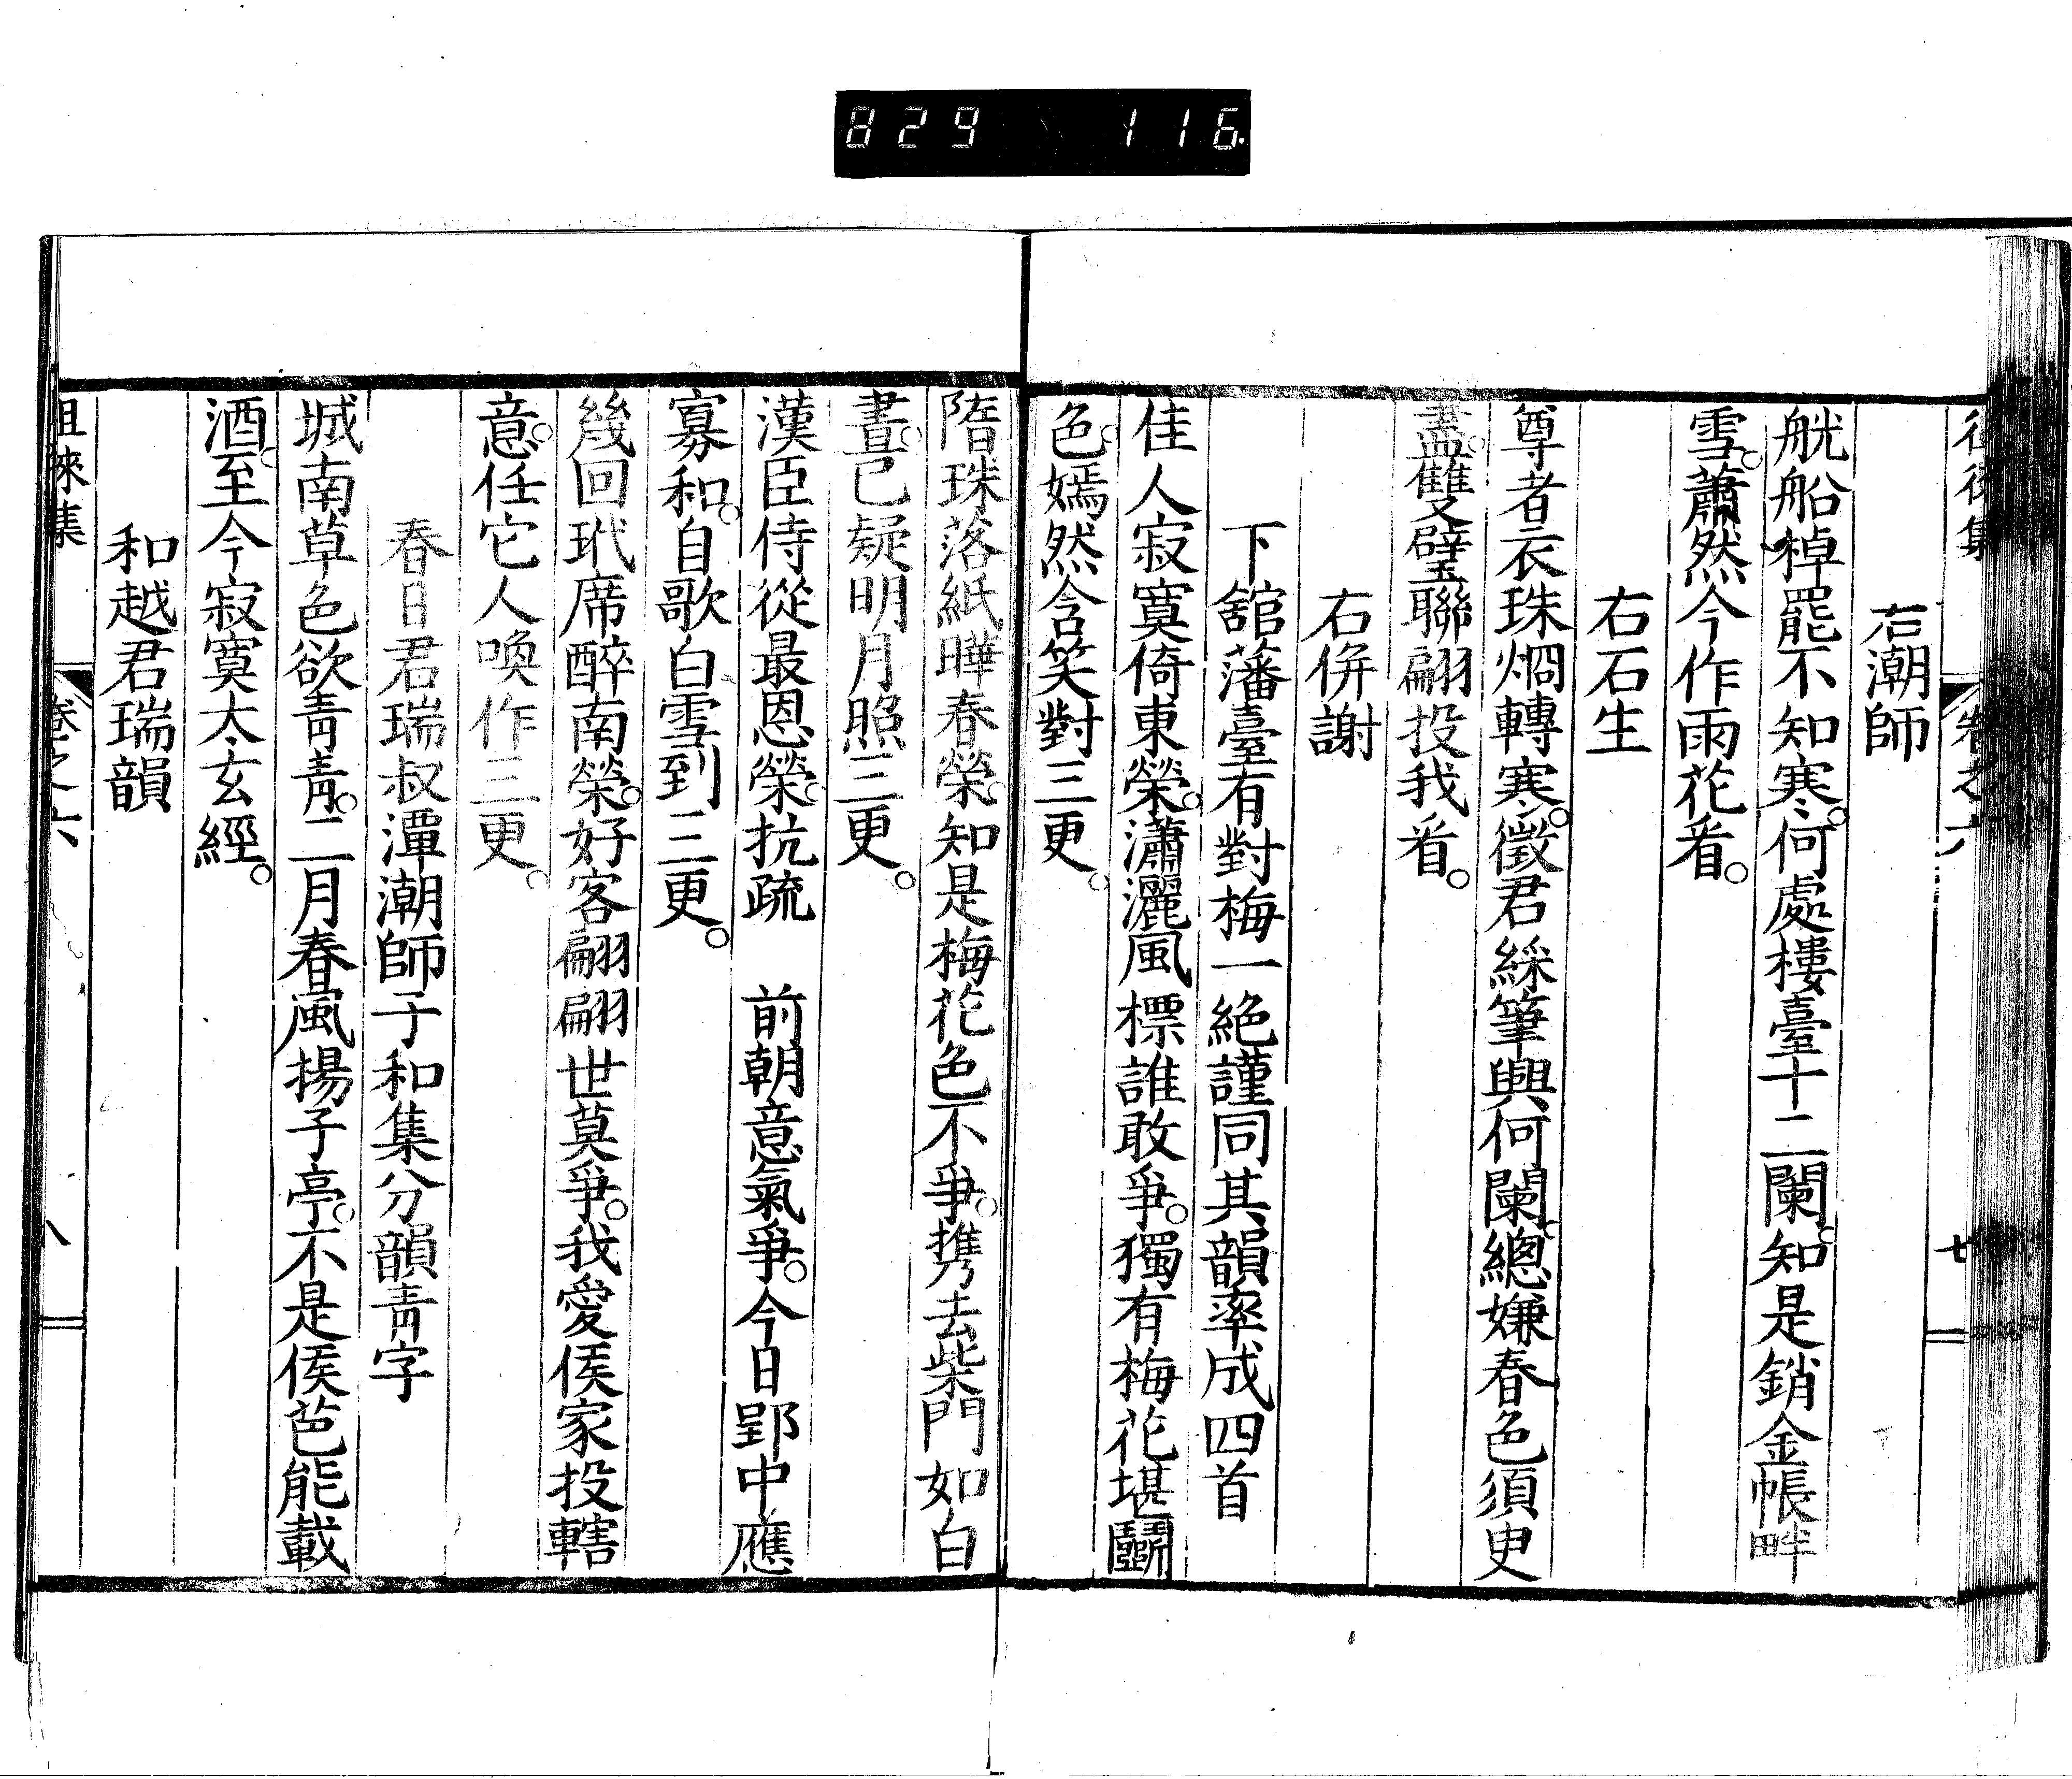 829 116
徂徠集 卷之六 七
右潮師
觥船棹罷不知寒。何處樓臺十二闌。知是銷金帳畔
雪。蕭然今作雨花看。
右石生
尊者衣珠烱轉寒。徵君綵筆興何闌。總嫌春色須臾
盡。雙璧聯翩投我看。
右併謝
下舘藩臺有對梅一絕謹同其韻率成四首
佳人寂寞倚東榮。瀟灑風標誰敢爭。獨有梅花堪鬬
色。嫣然含笑對三更。
隋珠落紙曄春榮。知是梅花色不爭。携去柴門如白
晝。已疑明月照三更。
漢臣侍從最恩榮。抗疏 前朝意氣爭。今日郢中應
寡和。自歌白雪到三更。
幾回玳席醉南榮。好客翩翩世莫爭。我愛侯家投轄
意。任它人喚作三更。
春日君瑞叔潭潮師子和集分韻青字
城南草色欲青青。二月春風揚子亭。不是侯芭能載
酒。至今寂寞太玄經。
和越君瑞韻
徂徠集 卷之六 八